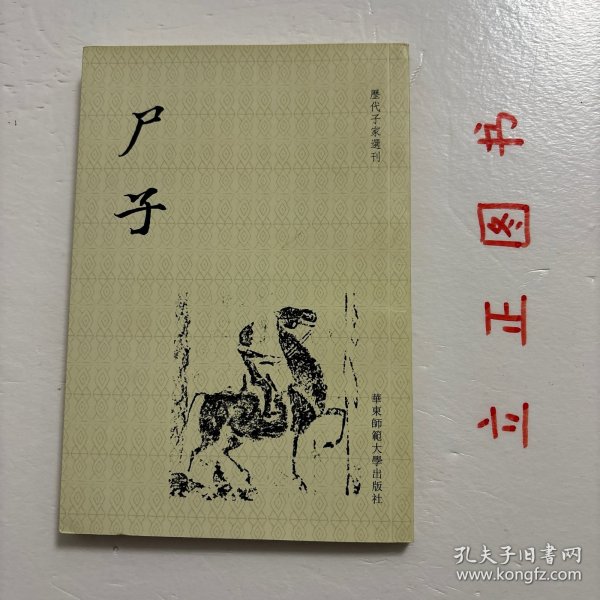 尸子
歷代子家選刊
華東師範大學出版社
立正图书
孔夫子旧书网
www.kongfz.com